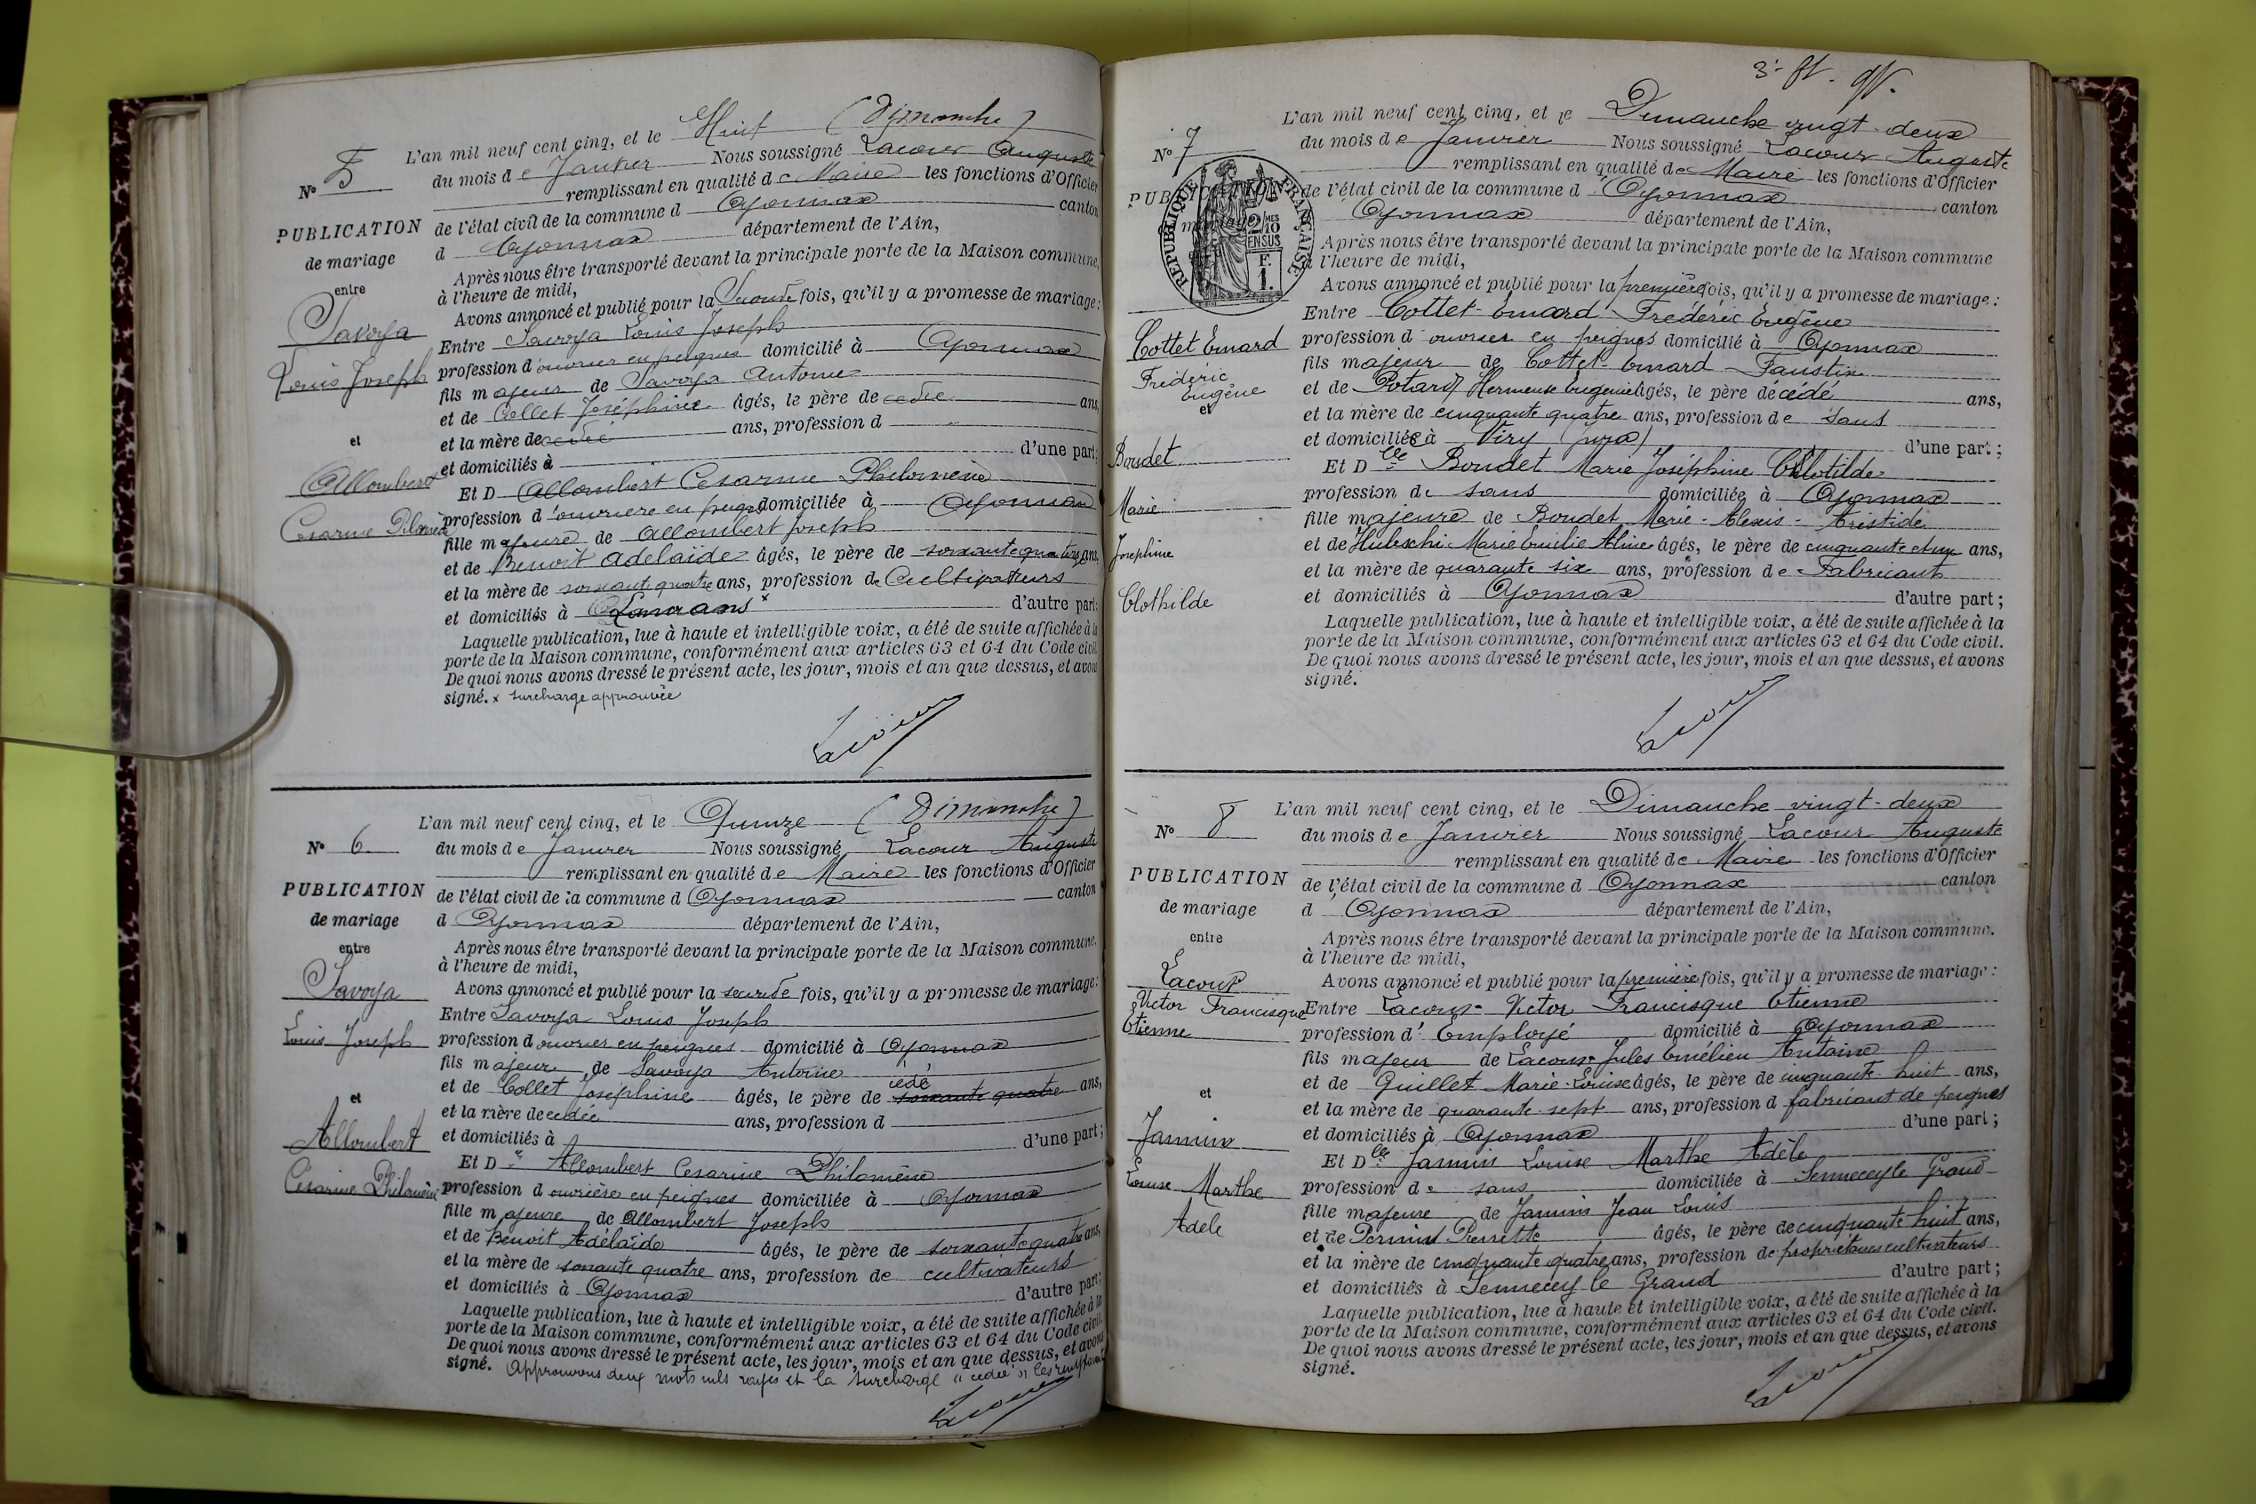 Nº 5
PUBLICATION
de mariage
entre
Savoya
Louis Joseph
et
Allombert
Cesarine Philomène
L'an mil neuf cent cinq, et le Huit (Dimanche)
du mois de Janvier Nous soussigné Lacour Auguste
remplissant en qualité de Maire les fonctions d'Officier
de l'état civil de la commune d Oyonnax canton
d Oyonnax département de l'Ain,
Après nous être transporté devant la principale porte de la Maison commune,
à l'heure de midi,
Avons annoncé et publié pour la Seconde fois, qu'il y a promesse de mariage :
Entre Savoya Louis Joseph
profession d'ouvrier en peignes domicilié à Oyonnax
fils majeur de Savoya Antoine
et de Collet Joséphine âgés, le père de cédé ans,
et la mère de cédée ans, profession d
et domiciliés à d'une part ;
Et D Allombert Cesarine Philomène
profession d'ouvrière en peignes domiciliée à Oyonnax
fille majeure de Allombert Joseph
et de Benoit Adelaïde âgés, le père de soixante quatre ans,
et la mère de soixante quatre ans, profession de Cultivateurs
et domiciliés à x d'autre part ;
Laquelle publication, lue à haute et intelligible voix, a été de suite affichée à la
porte de la Maison commune, conformément aux articles 63 et 64 du Code civil.
De quoi nous avons dressé le présent acte, les jour, mois et an que dessus, et avons
signé. x surcharge approuvée
Lacour
Nº 6
PUBLICATION
de mariage
entre
Savoya
Louis Joseph
et
Allombert
Césarine Philomène
L'an mil neuf cent cinq, et le Quinze (Dimanche)
du mois de Janvier Nous soussigné Lacour Auguste
remplissant en qualité de Maire les fonctions d'Officier
de l'état civil de la commune d Oyonnax canton
d Oyonnax département de l'Ain,
Après nous être transporté devant la principale porte de la Maison commune,
à l'heure de midi,
Avons annoncé et publié pour la seconde fois, qu'il y a promesse de mariage :
Entre Savoya Louis Joseph
profession d ouvrier en peignes domicilié à Oyonnax
fils majeur de Savoya Antoine
et de Collet Joséphine âgés, le père de cédé soixante quatre ans,
et la mère de cedée ans, profession d
et domiciliés à d'une part ;
Et De Allombert Cesarine Philomène
profession d ouvrière en peignes domiciliée à Oyonnax
fille majeure de Allombert Joseph
et de Benoit Adélaïde âgés, le père de soixante quatre ans,
et la mère de soixante quatre ans, profession de cultivateurs
et domiciliés à Oyonnax d'autre part ;
Laquelle publication, lue à haute et intelligible voix, a été de suite affichée à la
porte de la Maison commune, conformément aux articles 63 et 64 du Code civil.
De quoi nous avons dressé le présent acte, les jour, mois et an que dessus, et avons
signé. Approuvons deux mots nuls rayés et la surcharge "cédé" les remplaçant
Lacour
Nº 7
PUBLICATION
RÉPUBLIQUE FRANÇAISE
2/10MES
EN SUS
F.
1.
Cottet Emard
Frédéric
Eugène
et
Boudet
Marie
Josephine
Clothilde
L'an mil neuf cent cinq, et le Dimanche vingt-deux
du mois de Janvier Nous soussigné Lacour Auguste
remplissant en qualité de Maire les fonctions d'Officier
de l'état civil de la commune d'Oyonnax canton
Oyonnax département de l'Ain,
Après nous être transporté devant la principale porte de la Maison commune
à l'heure de midi,
Avons annoncé et publié pour la première fois, qu'il y a promesse de mariage :
Entre Cottet-Emard Frédéric Eugène
profession d'ouvrier en peignes domicilié à Oyonnax
fils majeur de Cottet-Emard Faustin
et de Hermense Eugenie âgés, le père décédé ans,
et la mère de cinquante quatre ans, profession de sans
et domiciliés à Viry (jura) d'une part ;
Et Dlle Boudet Marie Joséphine Clotilde
profession de sans domiciliée à Oyonnax
fille majeure de Boudet Marie-Alexis-Aristide
et de Marie Emilie Aline âgés, le père de cinquante et un ans,
et la mère de quarante six ans, profession de Fabricants
et domiciliés à Oyonnax d'autre part ;
Laquelle publication, lue à haute et intelligible voix, a été de suite affichée à la
porte de la Maison commune, conformément aux articles 63 et 64 du Code civil.
De quoi nous avons dressé le présent acte, les jour, mois et an que dessus, et avons
signé.
Lacour
Nº 8
PUBLICATION
de mariage
entre
Lacour
Victor Francisque
Etienne
et
Jannin
Louise Marthe
Adèle
L'an mil neuf cent cinq, et le Dimanche vingt-deux
du mois de Janvier Nous soussigné Lacour Auguste
remplissant en qualité de Maire les fonctions d'Officier
de l'état civil de la commune d Oyonnax canton
d Oyonnax département de l'Ain,
Après nous être transporté devant la principale porte de la Maison commune.
à l'heure de midi,
Avons annoncé et publié pour la première fois, qu'il y a promesse de mariage :
Entre Lacour Victor Francisque Etienne
profession d'Employé domicilié à Oyonnax
fils majeur de Lacour Jules Emélien Antoine
et de Guillet Marie-Louise âgés, le père de cinquante huit ans,
et la mère de quarante sept ans, profession d fabricant de peignes
et domiciliés à Oyonnax d'une part ;
Et Dlle Jannin Louise Marthe Adèle
profession de sans domiciliée à Sennecey le Grand
fille majeure de Jannin Jean Louis
et de Perrin Pierrette âgés, le père de cinquante huit ans,
et la mère de cinquante quatre ans, profession de propriétaires cultivateurs
et domiciliés à Sennecey le Grand d'autre part ;
Laquelle publication, lue à haute et intelligible voix, a été de suite affichée à la
porte de la Maison commune, conformément aux articles 63 et 64 du Code civil.
De quoi nous avons dressé le présent acte, les jour, mois et an que dessus, et avons
signé.
Lacour